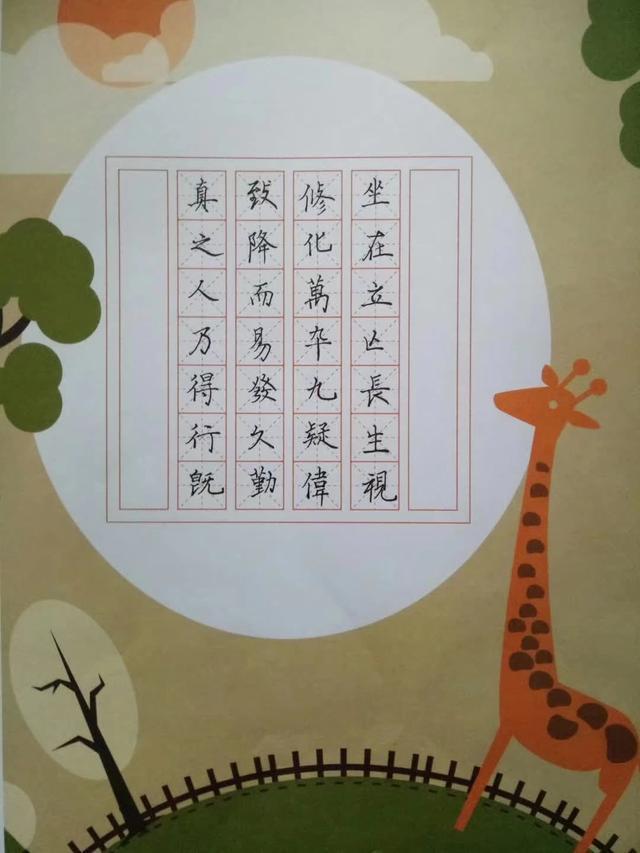 坐在立亾長生視
修化萬卒九疑偉
致降而易發久勤
真之人乃得行既